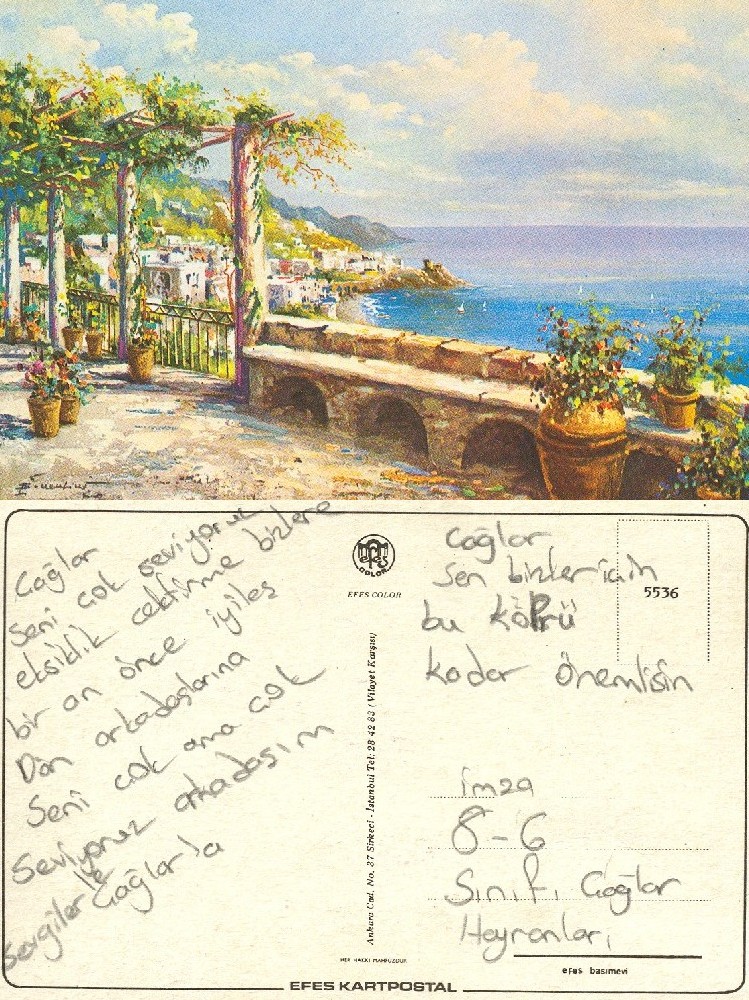 Çağlar
Seni çok seviyoruz
eksiklik çektirme bizlere
bir an önce iyileş
Dön arkadaşlarına
Seni çok ama çok
Seviyoruz arkadaşım
Sevgiler ile
Çağlar'a
efes
COLOR
EFES COLOR
Ankara Cad. No. 87 Sirkeci - İstanbul Tel: 28 42 83 (Vilayet Karşısı)
HER HAKKI MAHFUZDUR
Çağlar
Sen bizler için
bu köPrü
kadar önemlisin
5536
imza
8-6
Sınıfı Çağlar
Hayranları
efes basımevi
EFES KARTPOSTAL